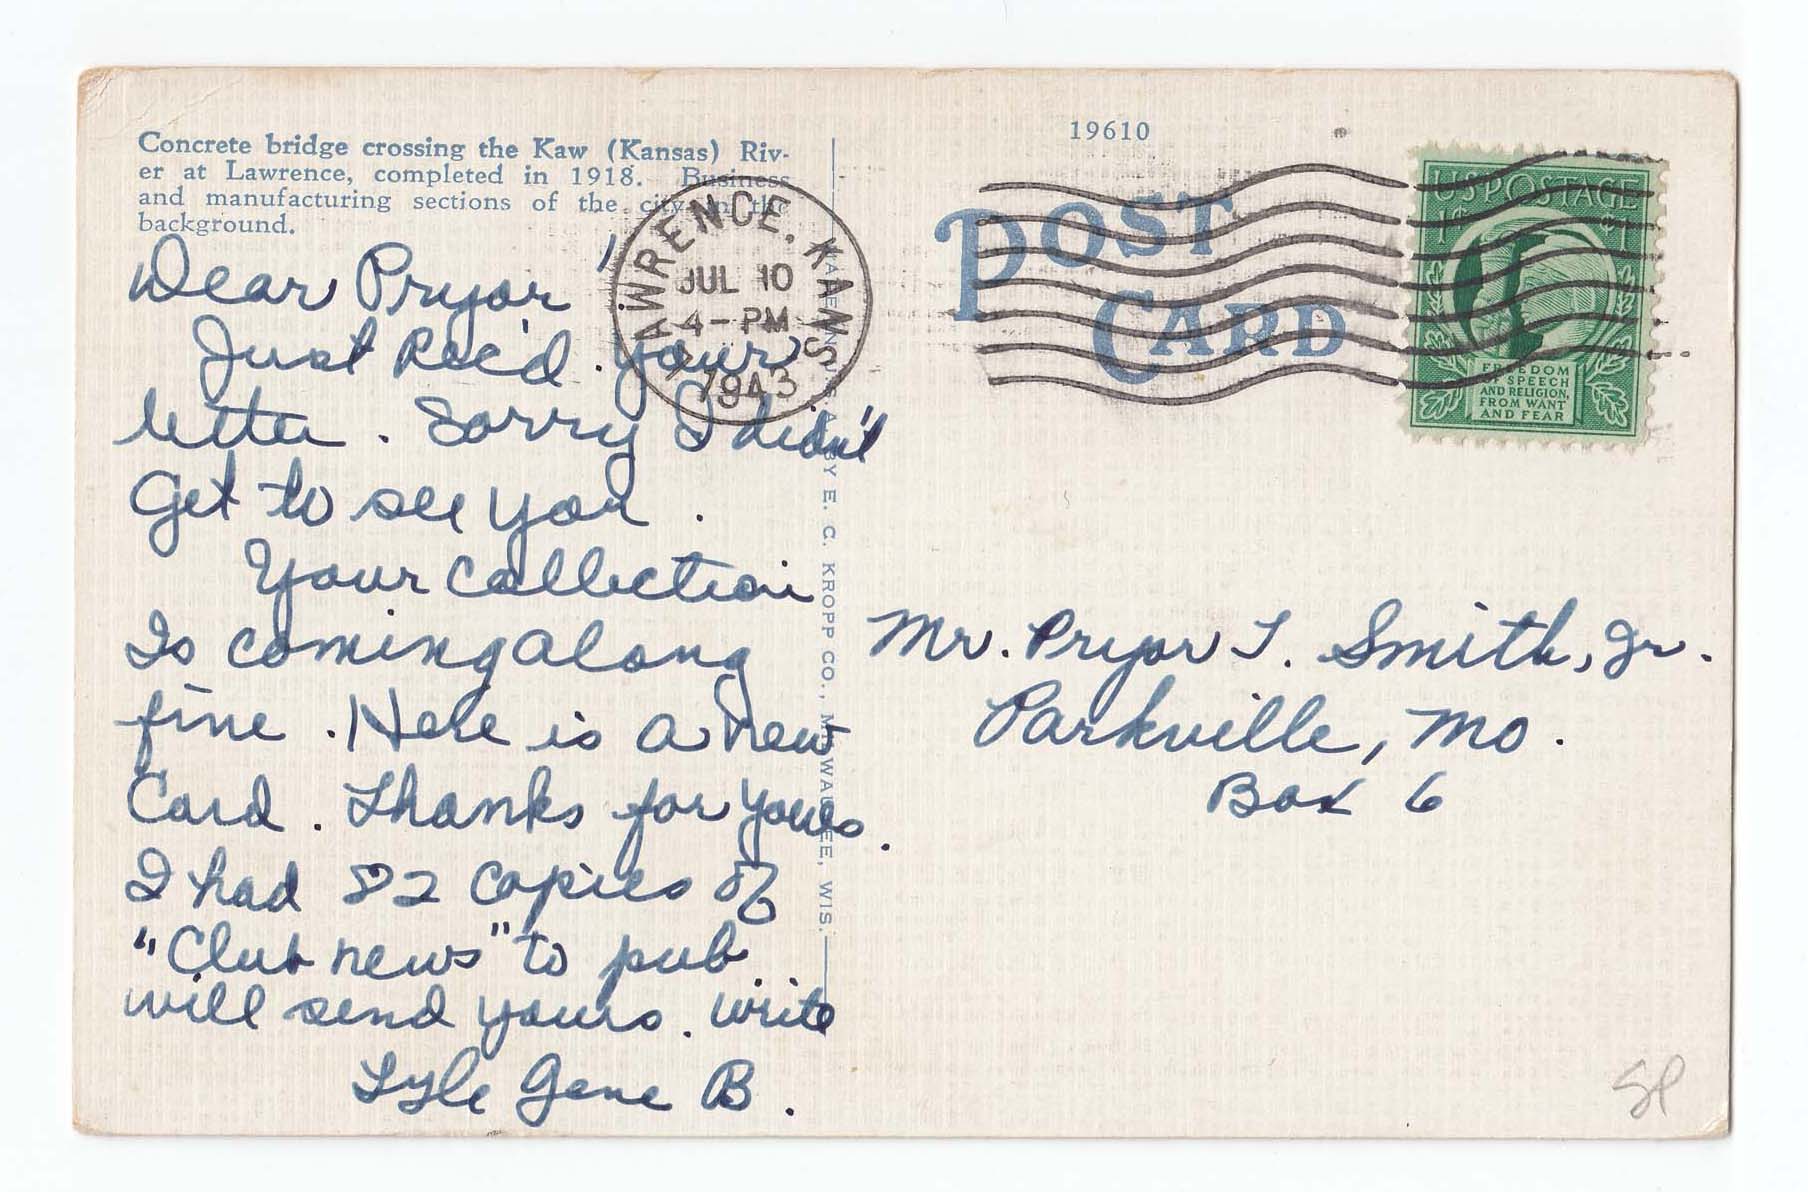 Concrete bridge crossing the Kaw (Kansas) Riv-
er at Lawrence, completed in 1918. Business
and manufacturing sections of the city in the
background.
Dear Pryor
Just Rec'd. your
letter. Sorry I didn't
Get to see you.
Your collection
Is coming along
fine. Here is a new
Card. Thanks for yours.
I had 82 copies of
"Club news" to pub
will send yours. write
Lyle Gene B.
LAWRENCE, KANS.
JUL 10
4-PM
1943
MADE IN U.S.A. BY E. C. KROPP CO., MILWAUKEE, WIS.
19610
POST
CARD
US POSTAGE
1¢ ¢1
FREEDOM
OF SPEECH
AND RELIGION,
FROM WANT
AND FEAR
Mr. Pryor T. Smith, Jr.
Parkville, Mo.
Box 6